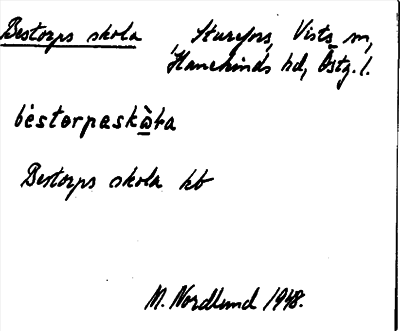 Bestorps skola Sturefors, Vists sn,
Hanekinds hd, Östg. l.
bèstorpaskὼɫa
Bestorps skola hb
M. Nordlund 1948.